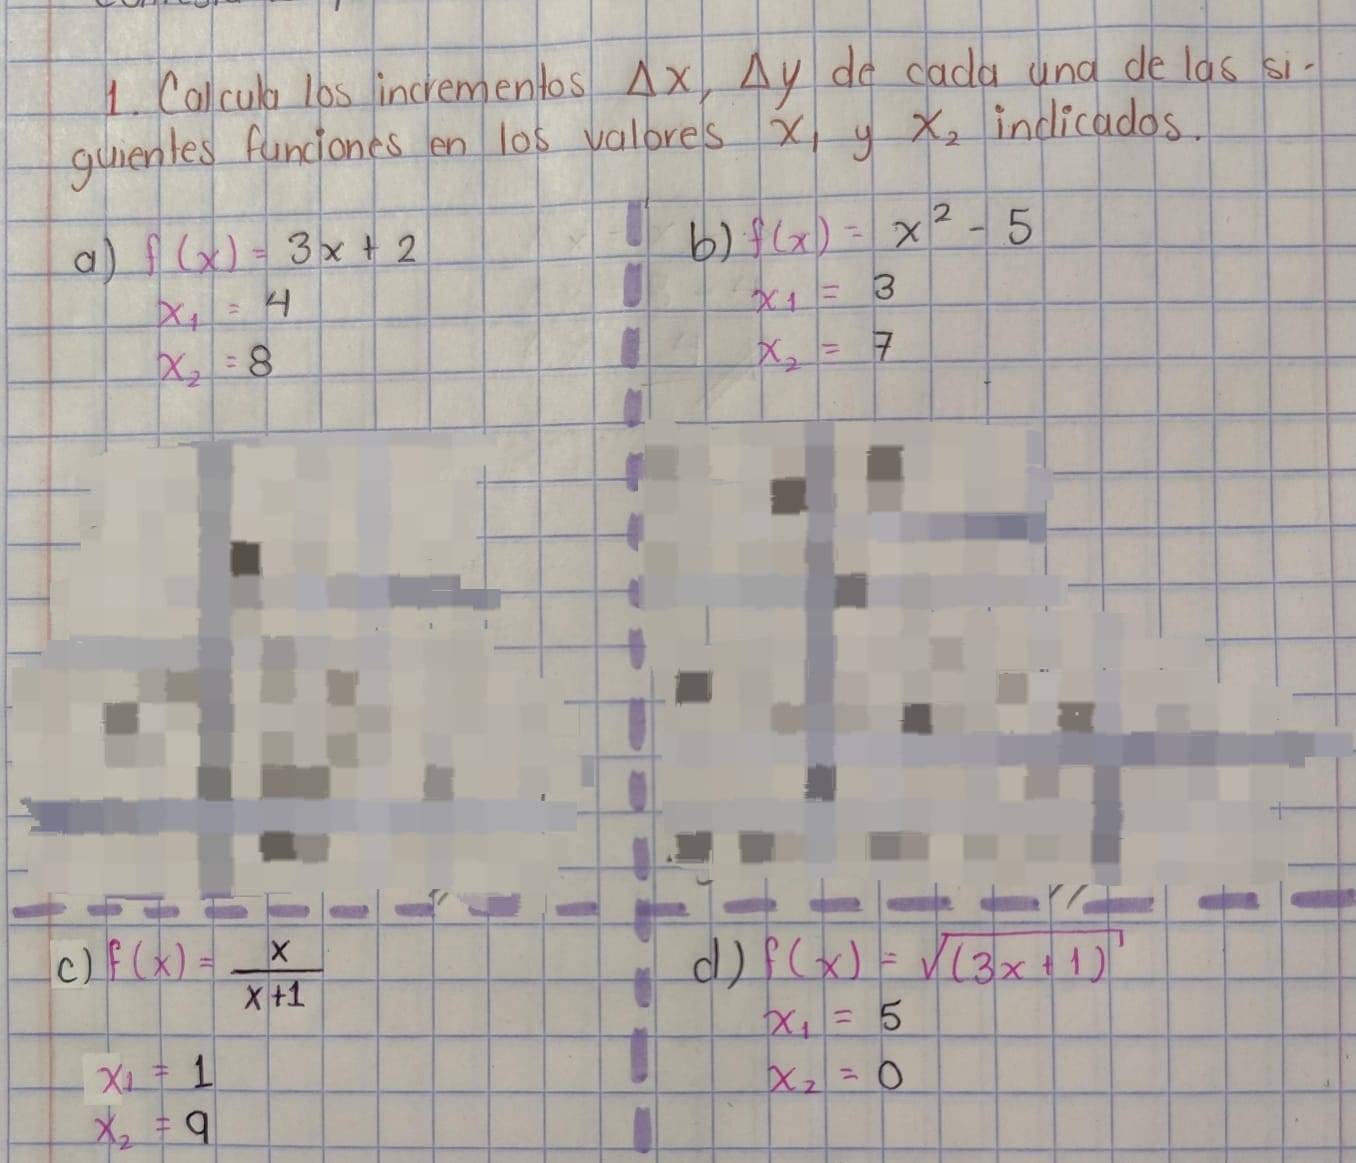 1. Calcula los incrementos Δx, Δy de cada una de las si-
guientes funciones en los valores x₁ y x₂ indicados.
a) f(x) = 3x + 2
x₁ = 4
x₂ = 8
b) f(x) = x² - 5
x₁ = 3
x₂ = 7
c) f(x) = x/(x+1)
x₁ = 1
x₂ = 9
d) f(x) = √(3x + 1)
x₁ = 5
x₂ = 0